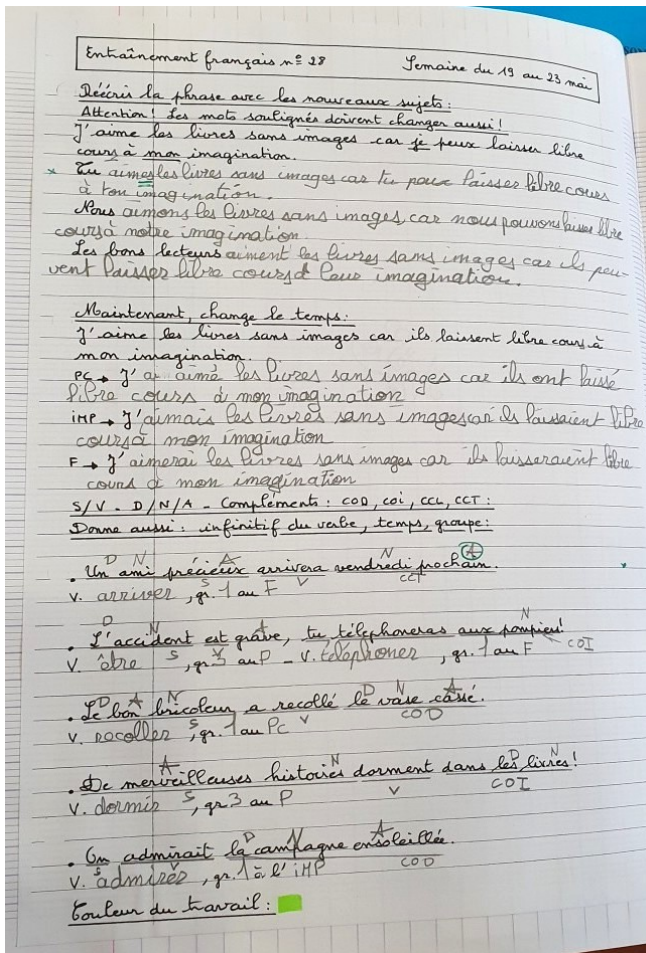 Entraînement français n° 28 Semaine du 19 au 23 mai
Réécris la phrase avec les nouveaux sujets :
Attention ! Les mots soulignés doivent changer aussi !
J'aime les livres sans images car je peux laisser libre
cours à mon imagination.
x Tu aimes les livres sans images car tu peux laisser libre cours
à ton imagination.
Nous aimons les livres sans images, car nous pouvons laisser libre
cours à notre imagination.
Les bons lecteurs aiment les livres sans images car ils peu-
vent laisser libre cours à leur imagination.
Maintenant, change le temps :
J'aime les livres sans images car ils laissent libre cours à
mon imagination.
PC → J'ai aimé les livres sans images car ils ont laissé
libre cours à mon imagination
iMP → J'aimais les livres sans images car ils laissaient libre
cours à mon imagination
F → J'aimerai les livres sans images car ils laisseraient libre
cours à mon imagination
S/V - D/N/A - Compléments : COD, COi, CCL, CCT :
Donne aussi : infinitif du verbe, temps, groupe :
D N A N A
. Un ami précieux arrivera vendredi prochain.
S V CCT
V. arriver, gr. 1 au F
D N A N
. L'accident est grave, tu téléphoneras aux pompiers!
S V COI
V. être, gr 3 au P - V. téléphoner, gr. 1 au F
D A N D N A
. Le bon bricoleur a recollé le vase cassé.
S V COD
V. recoller, gr. 1 au PC
A N D N
. De merveilleuses histoires dorment dans les livres !
S V COI
V. dormir, gr 3 au P
D N A
. On admirait la campagne ensoleillée.
S V COD
V. admirer, gr. 1 à l'iMP
Couleur du travail :